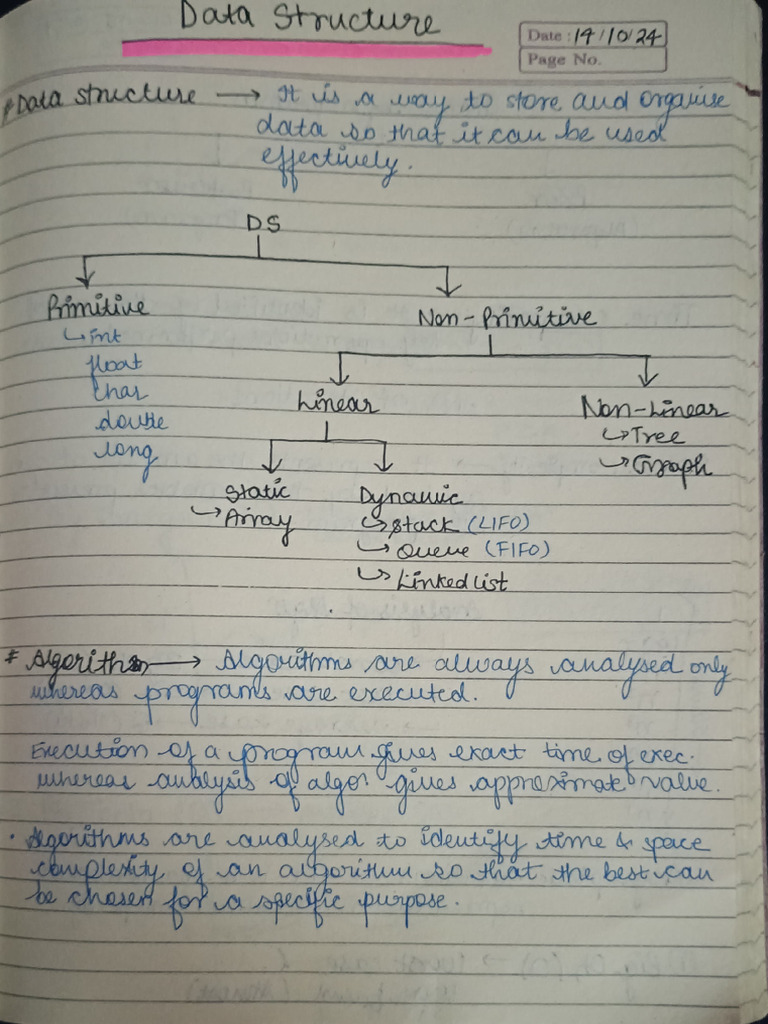 Data Structure
Date : 14/10/24
Page No.
# Data structure → It is a way to store and organise
data so that it can be used
effectively.
DS
Primitive
Non-Primitive
↳ int
float
char
double
long
Linear
Non-Linear
↳ Tree
↳ Graph
Static
Dynamic
↳ Array
↳ Stack (LIFO)
↳ Queue (FIFO)
↳ Linked list
# Algorithm → Algorithms are always analysed only
whereas programs are executed.
Execution of a program gives exact time of exec.
whereas analysis of algor. gives approximat value.
· Algorithms are analysed to identify time & space
complexity of an algorithm so that the best can
be chosen for a specific purpose.